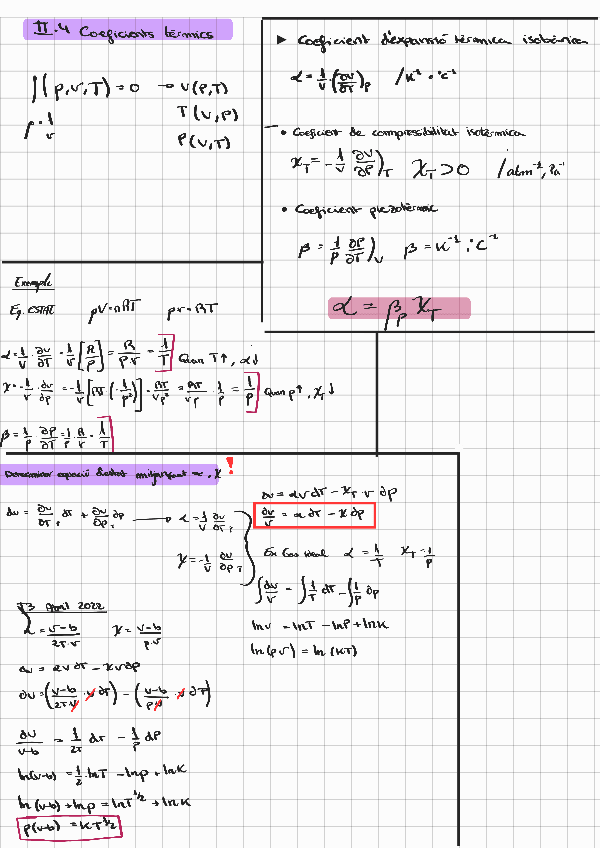 II.4 Coeficients tèrmics
∫(p,v,T) = 0 → v(p,T)
T(v,p)
p(v,T)
ρ = 1/v
▶ Coeficient d'expansió tèrmica isobàrica
α = 1/v (∂v/∂T)p /K⁻¹ · °C⁻¹
• Coeficient de compressibilitat isotèrmica
χT = -1/v ∂v/∂p)T χT > 0 /atm⁻¹, Pa⁻¹
• Coeficient piezotèrmic
β = 1/p ∂p/∂T)v β = K⁻¹ · °C⁻¹
α = β p χT
Exemple
Eq. ESTAT pV = nRT pv = RT
α = 1/v ∂v/∂T = 1/v [R/p] = R/pv = 1/T Quan T↑, α↓
χ = -1/v · ∂v/∂p = -1/v [RT · (-1/p²)] = RT/vp² = RT/vp · 1/p = 1/p Quan p↑, χT↓
β = 1/p ∂p/∂T = 1/p · R/v = 1/T
Determinar equació d'estat mitjançant α, χ !
dv = ∂v/∂T)p dT + ∂v/∂p)T ∂p → α = 1/v ∂v/∂T)p
χ = -1/v ∂v/∂p)T
∂v = αv dT - χT · v ∂p
∂v/v = α ∂T - χ ∂p
Ex Gas ideal α = 1/T χT = 1/p
∫ dv/v = ∫ 1/T dT - ∫ 1/p ∂p
ln v = ln T - ln p + ln K
ln(pv) = ln(KT)
J3 Abril 2022
α = v-b/2Tv χ = v-b/pv
dv = αv ∂T - χv ∂p
∂v = (v-b/2Tv · v ∂T) - (v-b/pv · v ∂p)
∂v/v-b = 1/2T dT - 1/p dP
ln(v-b) = 1/2 · ln T - ln p + ln K
ln(v-b) + ln p = ln T^1/2 + ln K
p(v-b) = KT^1/2